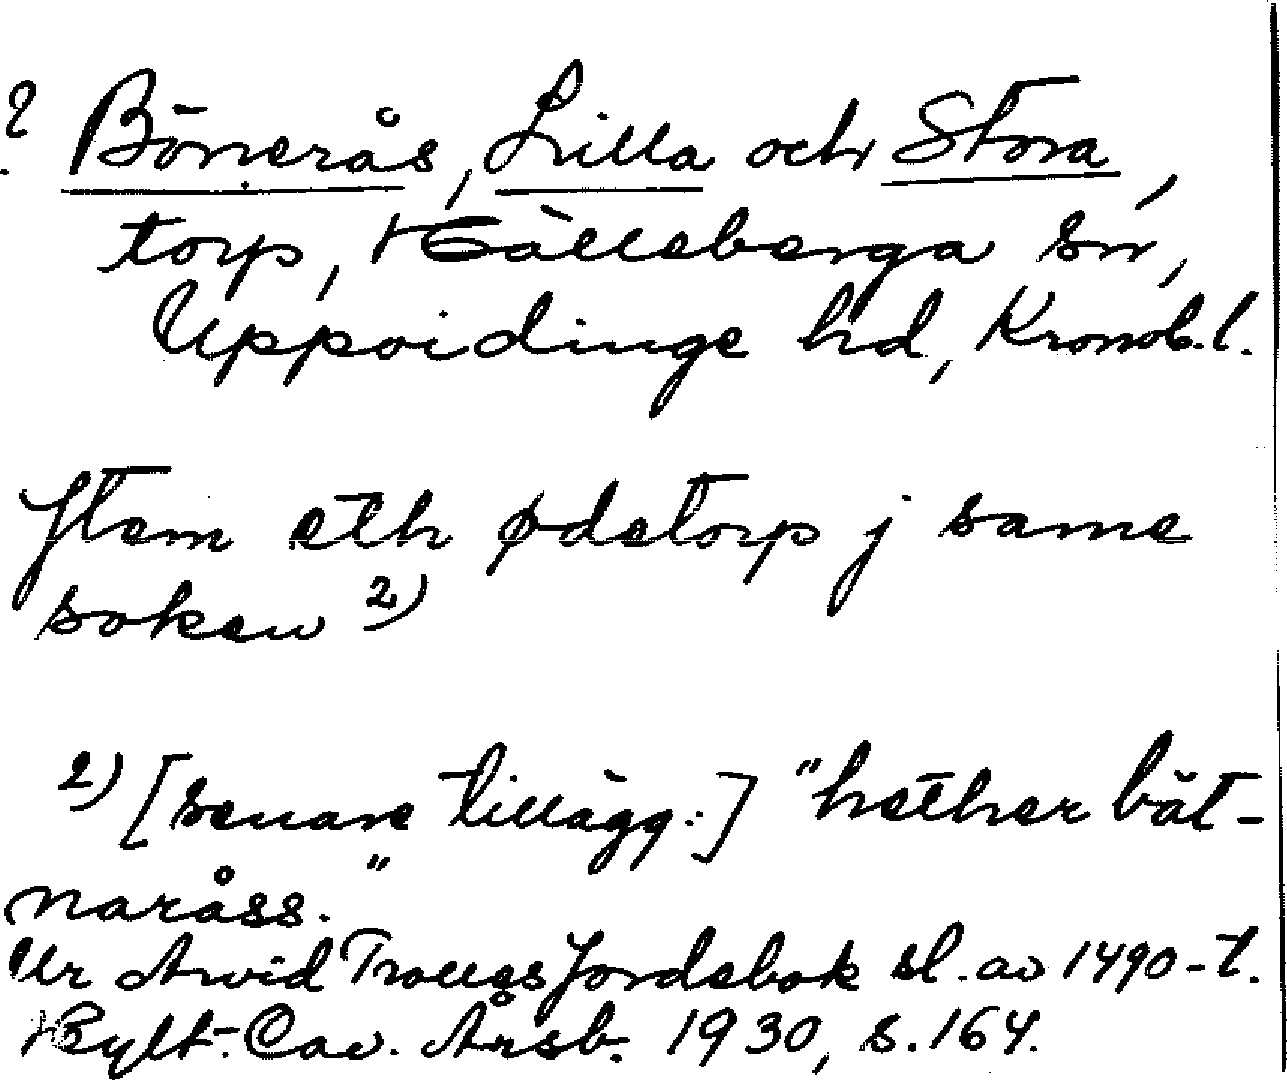 ? Bönerås, Lilla och Stora,
torp, Hälleberga sn,
Uppvidinge hd, Kronob. l.
Jtem eth ødetorp j same
soken 2)
2) [senare tillägg:] "hether båt-
naråss."
Ur Arvid Trolles Jordebok sl. av 1490-t.
Hylt.-Cav. Årsb. 1930, s. 164.